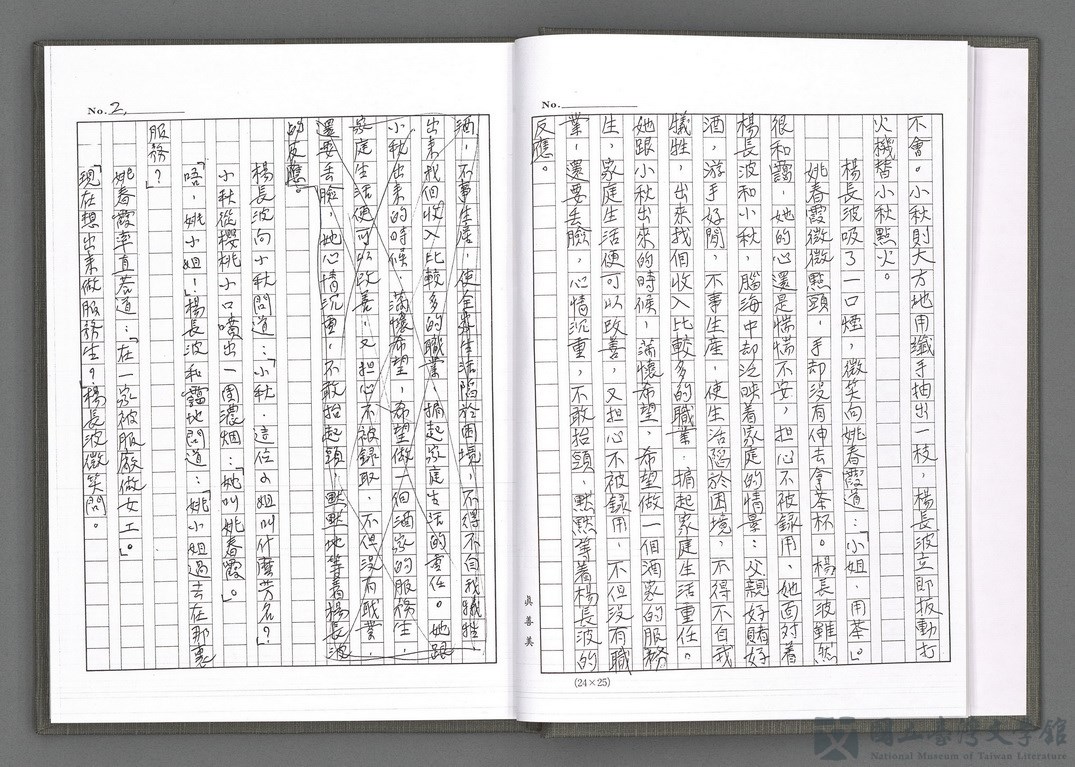 No.
不會。小秋則大方地用纖手抽出一枝，楊長波立即扳動打
火機替小秋點火。
楊長波吸了一口煙，微笑向姚春霞道：「小姐，用茶」。
姚春霞微微點頭，手却沒有伸去拿茶杯。楊長波雖然
很和靄，她的心還是惴惴不安，担心不被録用，她面对着
楊長波和小秋，腦海中却泛映着家庭的情景：父親好賭好
酒，游手好閒，不事生產，使生活陷於困境，不得不自我
犧牲，出來找個收入比較多的職業，掮起家庭生活重任。
她跟小秋出來的時候，滿懷希望，希望做一個酒家的服務
生，家庭生活便可以改善，又担心不被録用，不但没有職
業，還要丢臉，心情沉重，不敢抬頭，默默等着楊長波的
反應。
眞善美
(24×25)
No. 2,
酒，不事生產，使全家生活陷於困境，不得不自我犧牲，
出來找個收入比較多的職業，掮起家庭生活的重任。她跟
小秋出來的時候，滿懷希望，希望做一個酒家的服務生，
家庭生活便可以改善，又担心不被録取，不但没有職業，
還要丢臉，她心情沉重，不敢抬起頭，默默地等着楊長波
的反應。
楊長波向小秋問道：「小秋，這位小姐叫什麼芳名？
小秋從櫻桃小口噴出一團濃烟：「她叫姚春霞」。
「唔，姚小姐！」楊長波和靄地問道：「姚小姐過去在那裏
服務？」
姚春霞率直荅道：「在一家被服廠做女工」。
「現在想出來做服務生？」楊長波微笑問。
國立臺灣文學館
National Museum of Taiwan Literature